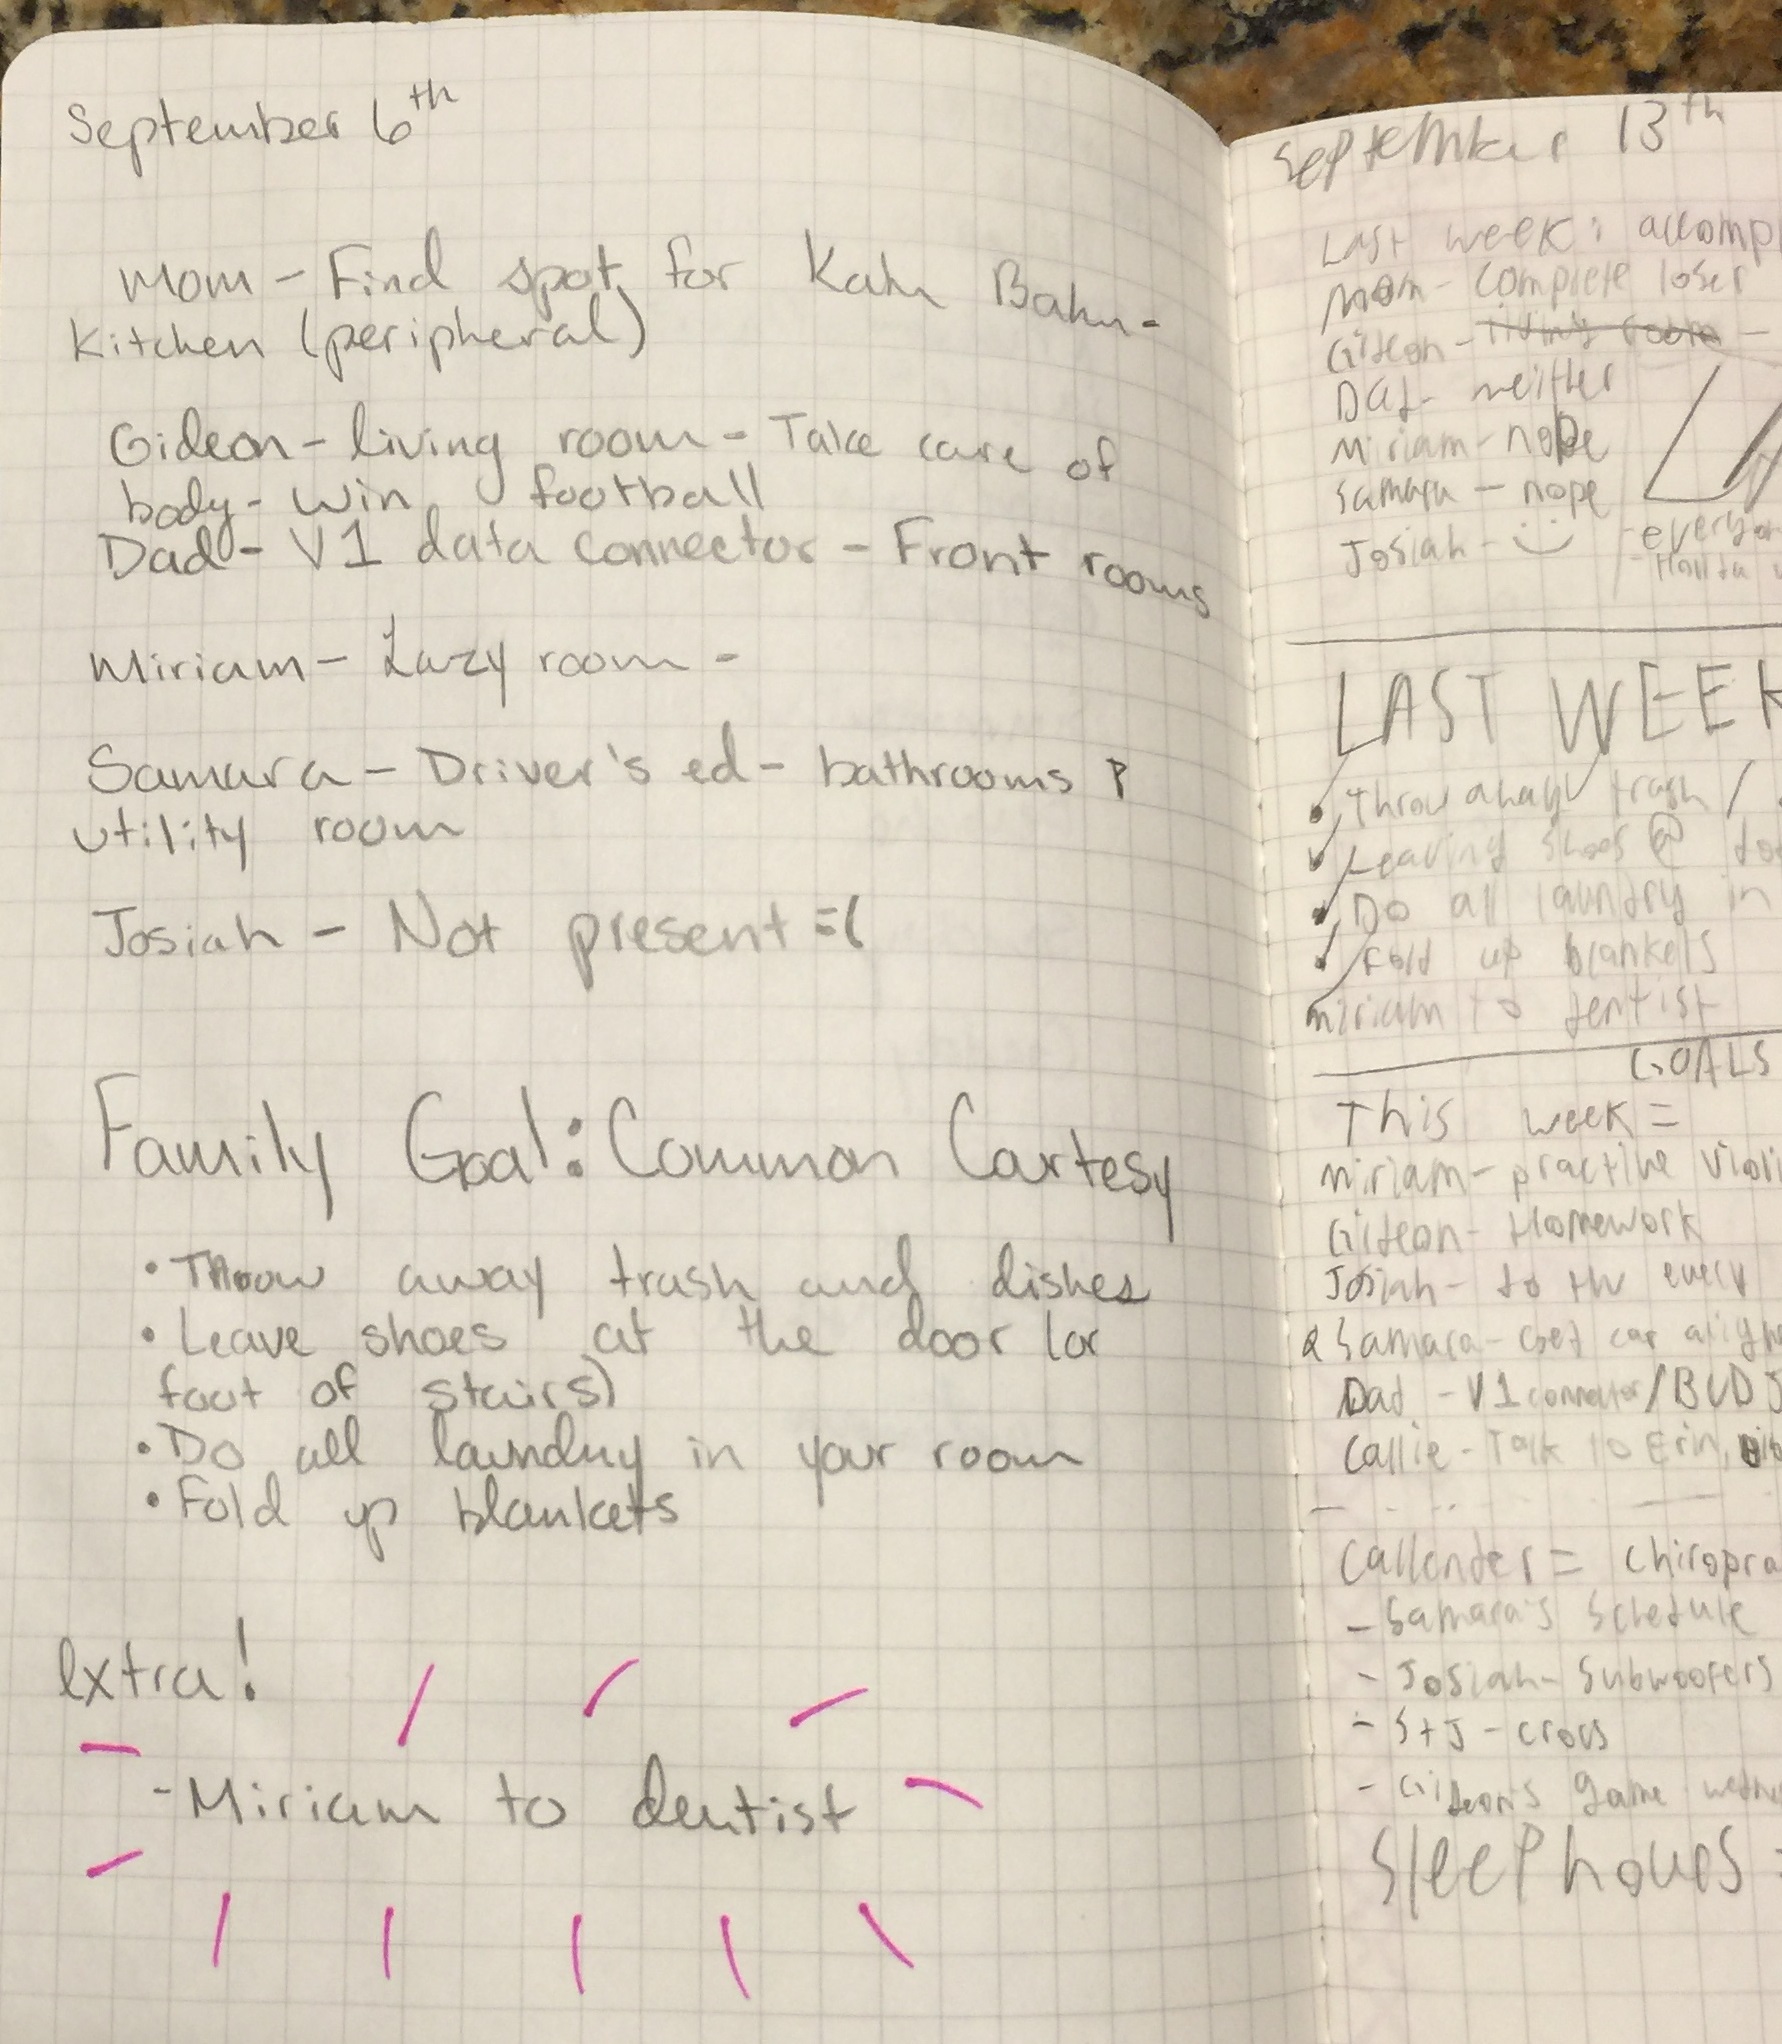 September 6th
Mom - Find spot for Kahn Bahn -
Kitchen (peripheral)
Gideon - living room - Take care of
body - win football
Dad - V1 data connector - Front rooms
Miriam - Lazy room -
Samara - Driver's ed - bathrooms &
utility room
Josiah - Not present =(
Family Goal: Common Cartesy
• Throw away trash and dishes
• Leave shoes at the door (or
foot of stairs)
• Do all laundry in your room
• Fold up blankets
extra!
- Miriam to dentist
September 13th
Last week: accomp
Mom - complete loser
Gideon - living room -
Dad - neither
Miriam - nope
Samara - nope
Josiah -
- everyon
LAST WEEK
• Throw away trash /
Leaving shoes @ do
• Do all laundry in
• Fold up blankets
Miriam to dentist
GOALS
This week =
Miriam - practice violi
Gideon - Homework
Josiah - to the every
Samara - Get car align
Dad - V1 connector / BVD J
Callie - Talk to Erin,
Callender = Chiropra
- Samara's Schedule
- Josiah - Subwoofers
- S + J - crocs
- Gideon's game wedne
Sleep hours =